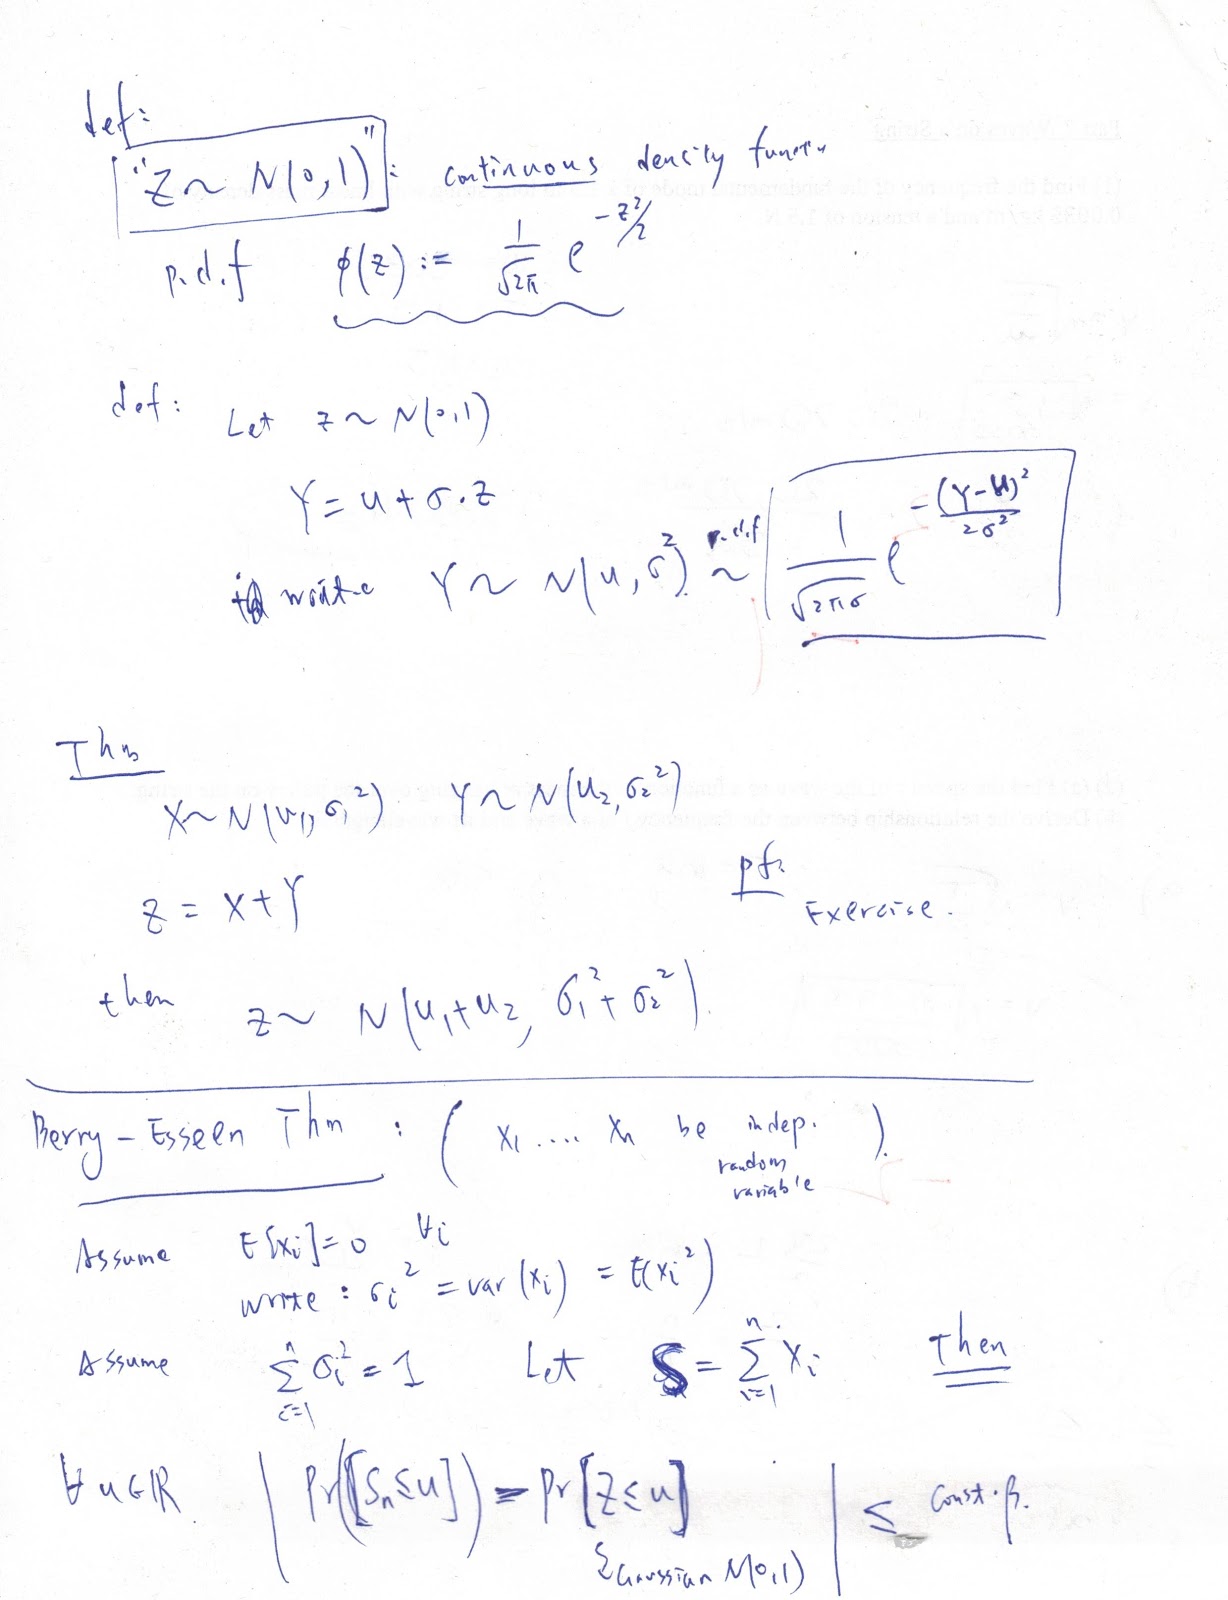 def:
"Z ~ N(0,1)" : continuous density functn
p.d.f φ(z) := 1/√2π e^(-z²/2)
def: Let z ~ N(0,1)
Y = u + σ·z
write Y ~ N(u, σ²) p.d.f ~ 1/√2πσ e^(-(Y-u)²/2σ²)
Thm
X ~ N(u₁, σ₁²) Y ~ N(u₂, σ₂²)
z = X + Y
pf:
Exercise.
then z ~ N(u₁+u₂, σ₁²+σ₂²).
Berry-Esseen Thm : ( X₁ .... Xn be indep. random variable ).
Assume E[xi] = 0 ∀i
write : σi² = var(xi) = E(xi²)
Assume Σ_{i=1}^{n} σi² = 1 Let S = Σ_{i=1}^{n} Xi Then
∀ u∈ℝ | Pr([Sn ≤ u]) - Pr[Z ≤ u] | ≤ const·β.
Gaussian N(0,1)